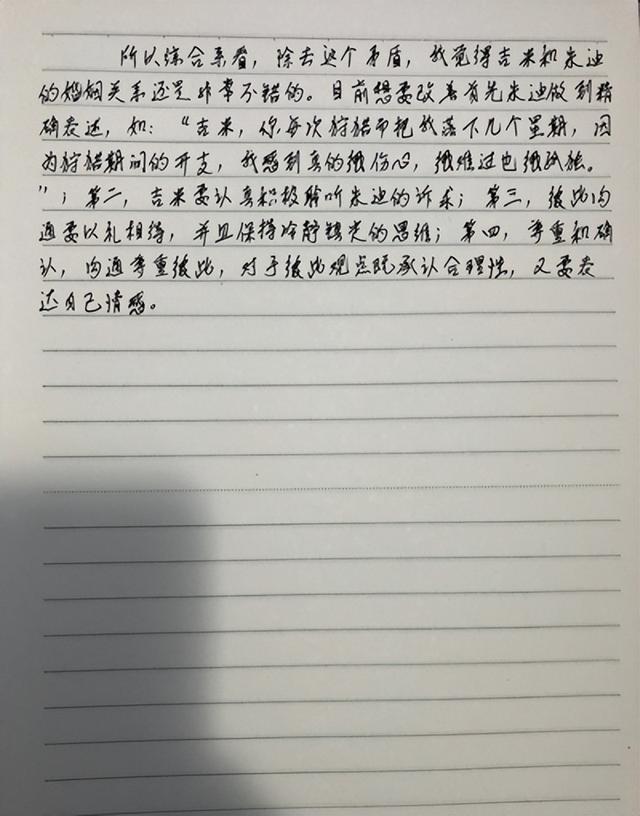 所以综合来看，除去这个矛盾，我觉得吉米和朱迪
的婚姻关系还是非常不错的。目前想要改善首先朱迪做到精
确表达，如：“吉米，你每次狩猎而把我落下几个星期，因
为狩猎期间的开支，我感到真的很伤心，很难过也很孤独。
”；第二，吉米要认真积极聆听朱迪的诉求；第三，彼此沟
通要以礼相待，并且保持冷静的思维；第四，尊重和确
认，沟通尊重彼此，对于彼此观点既承认合理性，又要表
达自己情感。